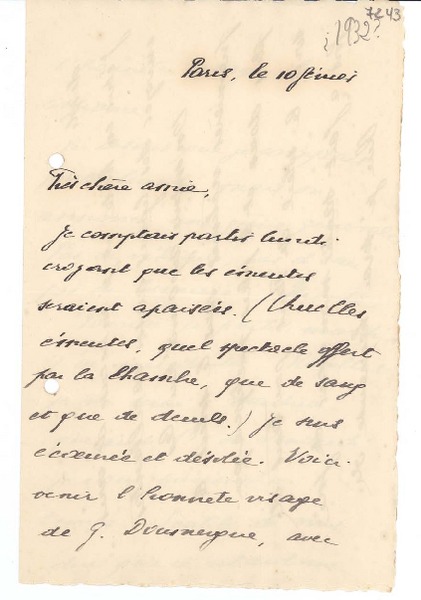 7243
¿1932?
Paris, le 10 février
Très chère amie,
Je comptais partir lundi
croyant que les émeutes
seraient apaisées. (Quelles
émeutes, quel spectacle offert
par la Chambre, que de sang
et que de deuils.) Je suis
écœurée et désolée. Voici
venir l'honnête visage
de G. Doumergue, avec